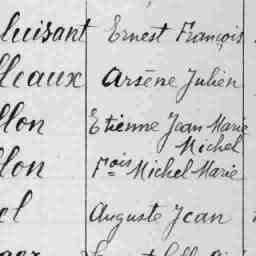 luisant Ernest François
lleaux Arsène Julien
llon Etienne Jean Marie
Michel
llon Fois Michel Marie
el Auguste Jean